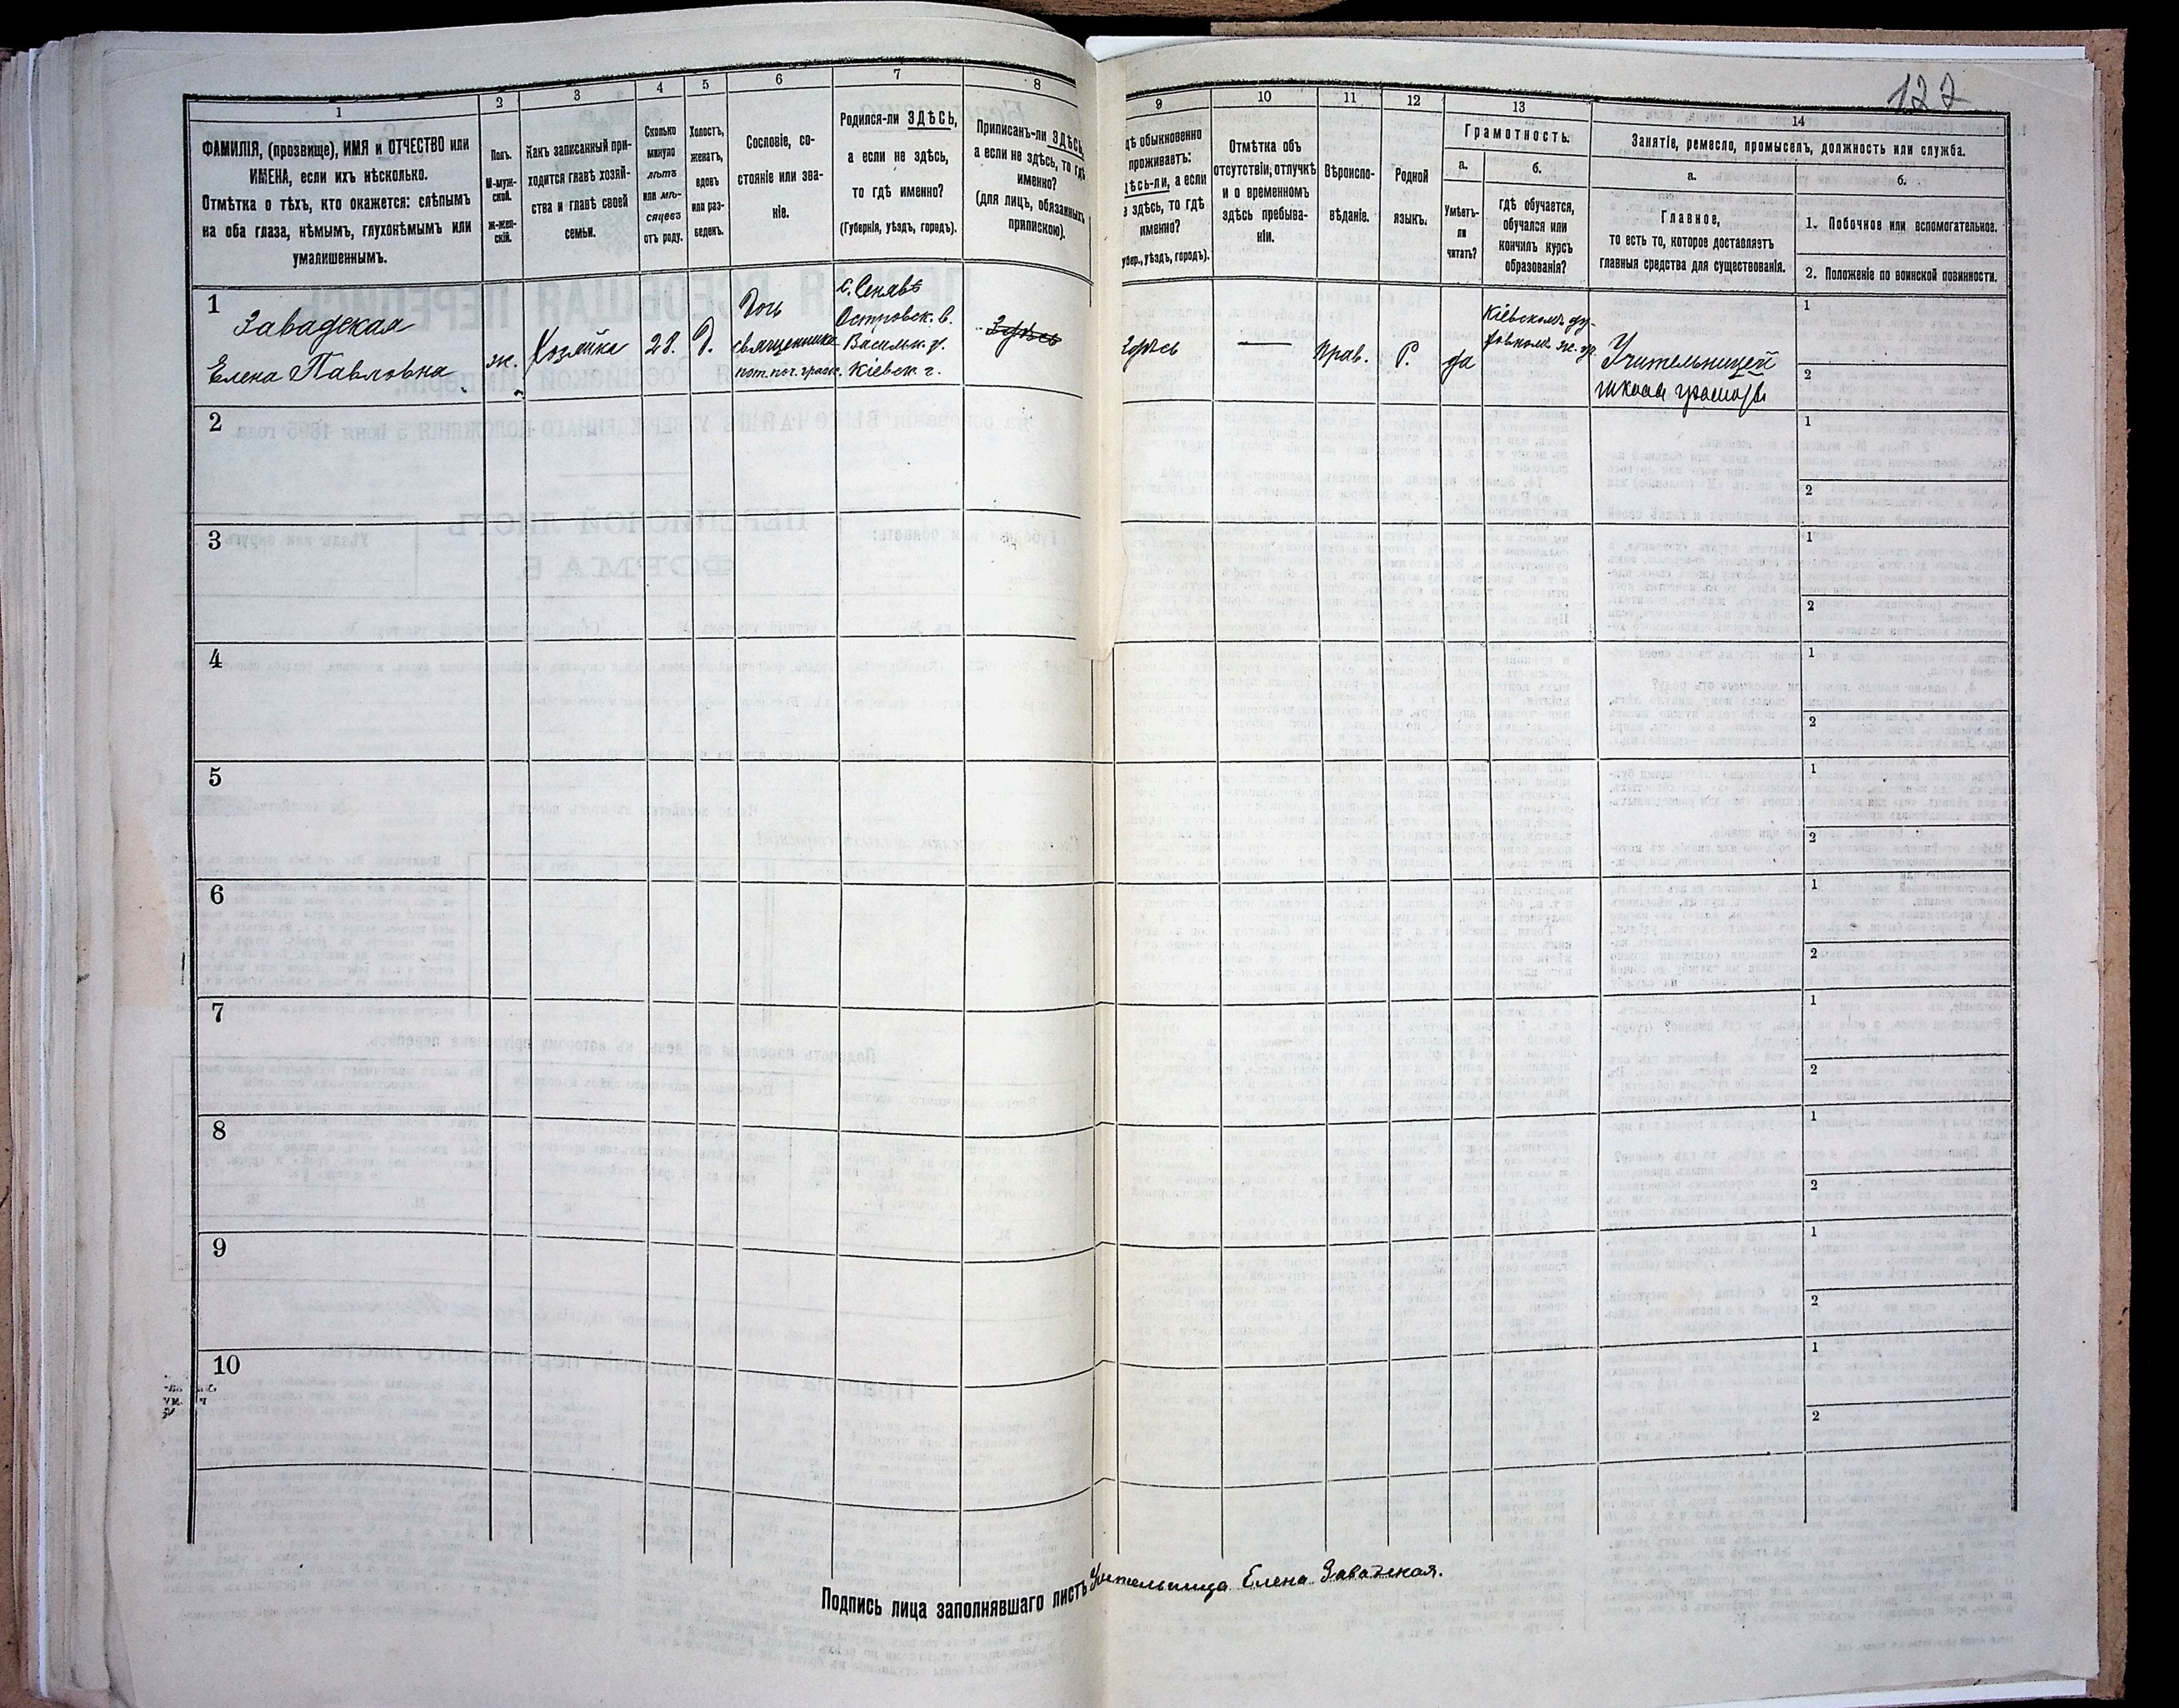 127
1
2
3
4
5
6
7
8
9
10
11
12
13
14
ФАМИЛІЯ, (прозвище), ИМЯ и ОТЧЕСТВО или
ИМЕНА, если ихъ нѣсколько.
Отмѣтка о тѣхъ, кто окажется: слѣпымъ
на оба глаза, нѣмымъ, глухонѣмымъ или
умалишеннымъ.
Полъ.
М-муж-
ской.
Ж-жен-
скій.
Какъ записанный при-
ходится главѣ хозяй-
ства и главѣ своей
семьи.
Сколько
минуло
лѣтъ
или мѣ-
сяцевъ
отъ роду.
Холостъ,
женатъ,
вдовъ
или раз-
веденъ.
Сословіе, со-
стояніе или зва-
ніе.
Родился-ли ЗДѢСЬ,
а если не здѣсь,
то гдѣ именно?
(Губернія, уѣздъ, городъ).
Приписанъ-ли ЗДѢСЬ,
а если не здѣсь, то гдѣ
именно?
(для лицъ, обязанныхъ
припискою).
дѣ обыкновенно
проживаетъ:
дѣсь-ли, а если
е здѣсь, то гдѣ
именно?
убер., уѣздъ, городъ).
Отмѣтка объ
отсутствіи, отлучкѣ
и о временномъ
здѣсь пребыва-
ніи.
Вѣроиспо-
вѣданіе.
Родной
языкъ.
Грамотность.
а.
Умѣетъ-
ли
читать?
б.
гдѣ обучается,
обучался или
кончилъ курсъ
образованія?
Занятіе, ремесло, промыселъ, должность или служба.
а.
Главное,
то есть то, которое доставляетъ
главныя средства для существованія.
б.
1. Побочное или вспомогательное.
2. Положеніе по воинской повинности.
1
Завадская
Елена Павловна
ж.
Хозяйка
28.
Д.
Дочь
священника
пот. поч. гражд.
с. Сенявѣ
Островск. в.
Васильк. у.
Кіевск. г.
Здѣсь
Здѣсь
—
Прав.
Р.
да
Кіевскомъ ду-
ховномъ ж. у.
Учительницей
школы грамоты
1
2
2
1
2
3
1
2
4
1
2
5
1
2
6
1
2
7
1
2
8
1
2
9
1
2
10
1
2
Подпись лица заполнявшаго листъ Учительница Елена Завадская.